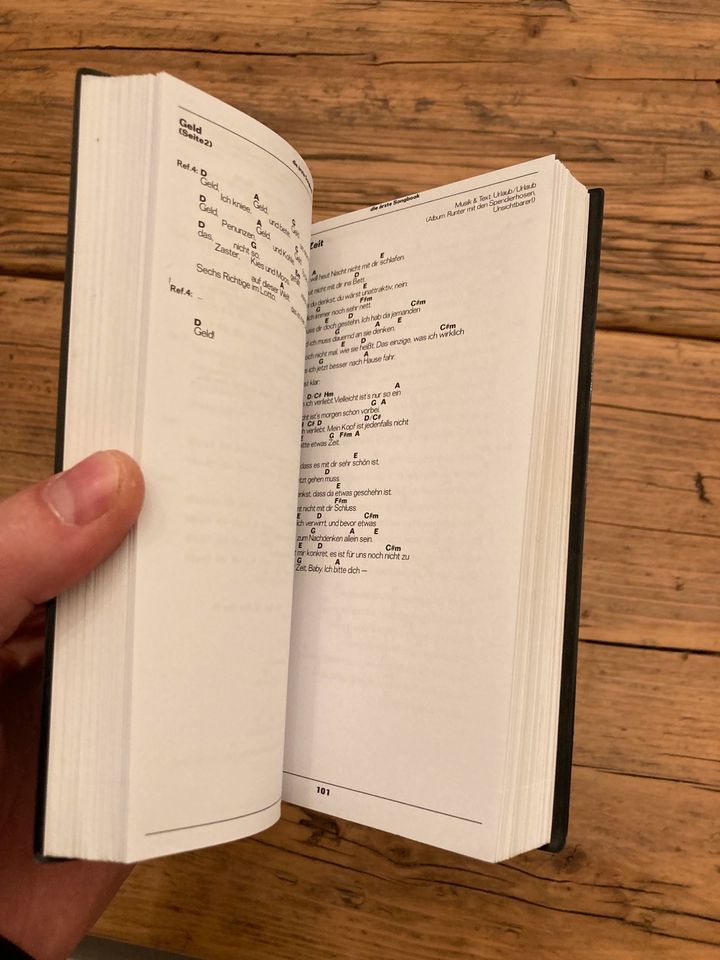 Geld
(Seite2)
die ärzte Songbook
Ref.4: D
Geld,
A
Ich kniee, Geld,
C
und bete, Geld,
D
Geld,
A
Penunzen, Geld,
C
und Kohle, Geld
D
das,
G
nicht so,
Em
Zaster, Kies und Moos,
A
auf dieser Welt,
Sechs Richtige im Lotto,
Ref.4: –
D
Geld!
die ärzte Songbook
Musik & Text: Urlaub/Urlaub
(Album: Runter mit den Spendierhosen,
Unsichtbarer!)
Zeit
A E
will heut Nacht nicht mit dir schlafen.
D
nicht mit dir ins Bett.
E
du denkst, du wärst unattraktiv: nein:
G F#m
immer noch sehr nett.
E D C#m
muss dir doch gestehn. Ich hab da jemanden
G A E
ich muss dauernd an sie denken.
E D C#m
noch nicht mal, wie sie heißt. Das einzige, was ich wirklich
G A
ich jetzt besser nach Hause fahr.
klar:
D/C# Hm A
ich verliebt. Vielleicht ist's nur so ein
G A
ist's morgen schon vorbei.
C# D D/C#
verliebt. Mein Kopf ist jedenfalls nicht
E G F#m A
bitte etwas Zeit.
E
dass es mit dir sehr schön ist,
D
jetzt gehen muss.
E
denkst, dass da etwas geschehn ist.
F#m
nicht mit dir Schluss.
E D C#m
ich verwirrt, und bevor etwas
G A E
zum Nachdenken allein sein.
E D C#m
mir konkret, es ist für uns noch nicht zu
G A
Zeit, Baby. Ich bitte dich —
101